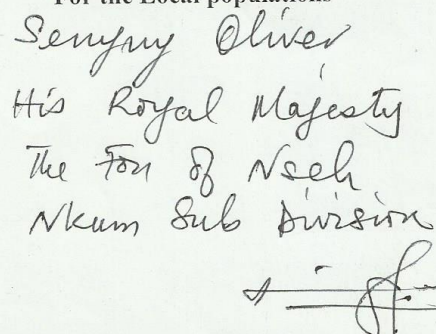 For the Local populations
Senyuy Oliver
His Royal Majesty
The Fon of Nseh
Nkum Sub Division